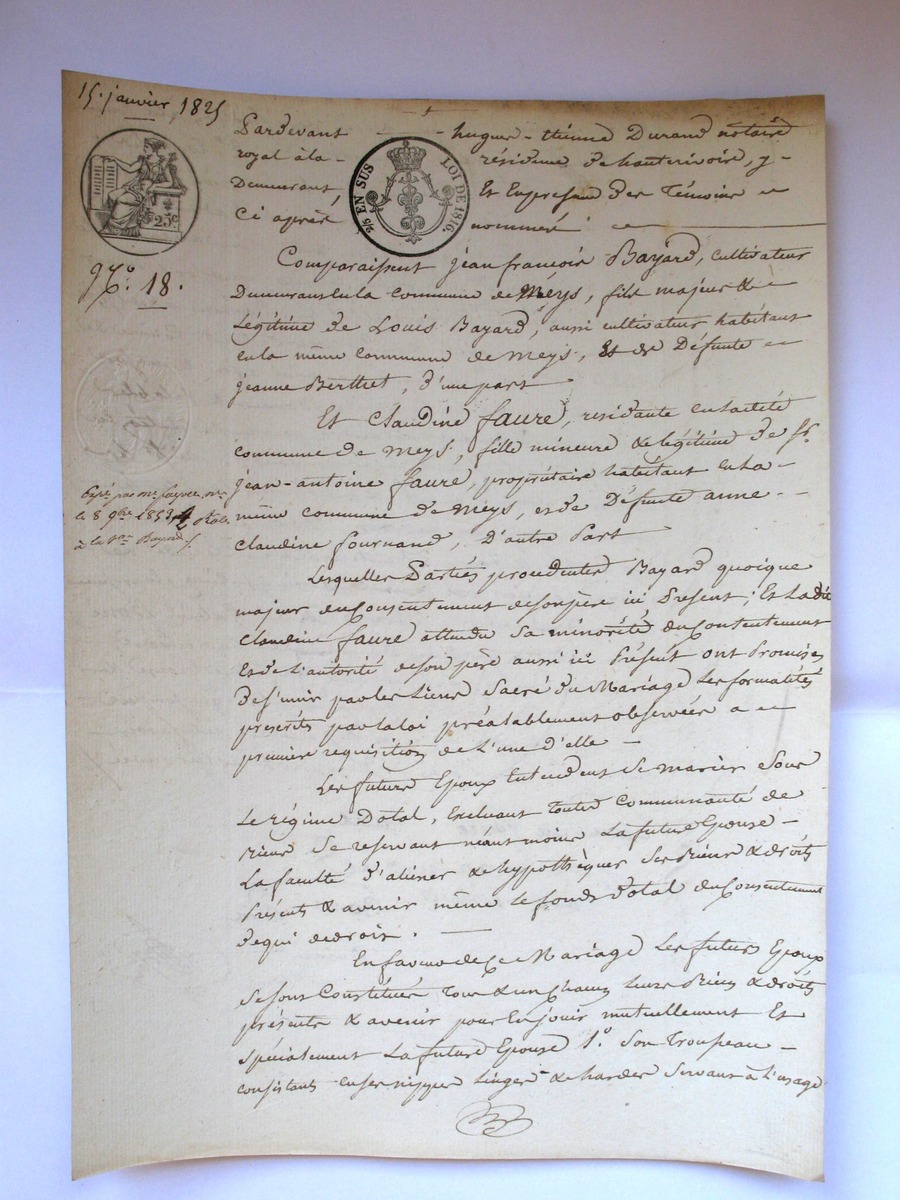 15. janvier 1825
Pardevant hugue-étienne Durand notaire
royal à la résidence de hauterivoire, y
Demeurant Et En présence des Témoins
Ci après nommés
2/5 EN SUS LOI DE 1816.
25c
No. 18.
Comparaissent jean françois Bayard, cultivateur
Demeurant En la Commune de Meys, fils majeur &
Légitime de Louis Bayard, aussi cultivateur habitant
en la même Commune de meys, Et de Défunte
jeanne Berthet, d'une part
Et Claudine faure, residante en ladite
Commune de meys, fille mineure & légitime de Sr.
jean-antoine faure, propriétaire habitant En la
même Commune de Meys, et de Défunte anne
Claudine fournand, D'autre Part
Expé. par me
le 8 9bre 1853
à la Bayard
Lesquelles Parties procedentes Bayard quoique
majeur du Consentement de son père ici Présent; Et La dite
Claudine faure attendu Sa minorité du Consentement
Et de L'autorité de son père aussi ici Présent ont Promis
de s'unir par les Liens Sacré du Mariage Les formalités
prescrits par la loi préalablement observées a
première requisition de L'une d'elle
Les futurs Epoux Entendent Se marier Sous
Le régime Dotal, Excluant Toutes Communauté de
Biens Se reservant néantmoins La future Epouse
La faculté d'aliéner & hypothéquer Ses Biens & droits
Présents & avenir même Le fonds Dotal du Consentement
de qui de droit.
En faveur de Ce Mariage Les futurs Epoux
Se sont Constitués Tous & un Chacun Leurs Biens & droits
présents & avenir pour En jouir mutuellement Et
Spécialement La future Epouse 1o. Son Trousseau
Consistant en ses nippes Linges & hardes Servant à L'usage